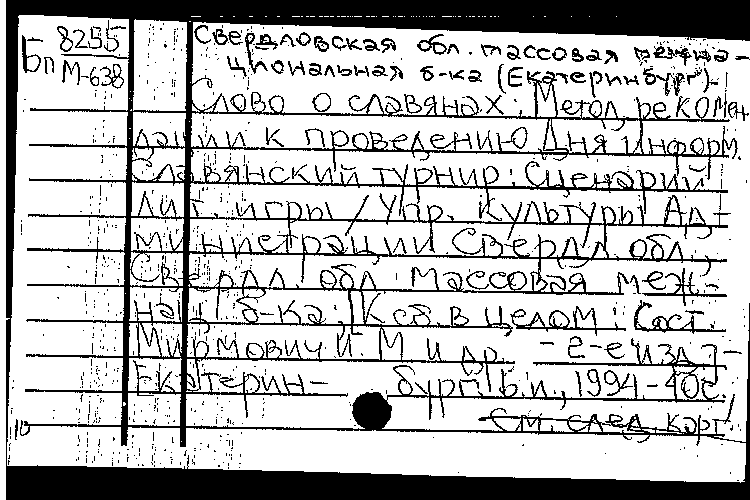 8255
Бп М-638
Свердловская обл. массовая межна-
циональная б-ка (Екатеринбург).
Слово о славянах: Метод. рекомен
дации к проведению Дня информ.
Славянский турнир: Сценарий
лит. игры / Упр. культуры Ад-
министрации Свердл. обл.,
Свердл. обл. массовая меж-
нац. б-ка; [К сб. в целом: Сост.
Мирмович И. М. и др. - 2-е изд.]-
Екатерин- бург: Б.и., 1994-40с.
см. след. карт.